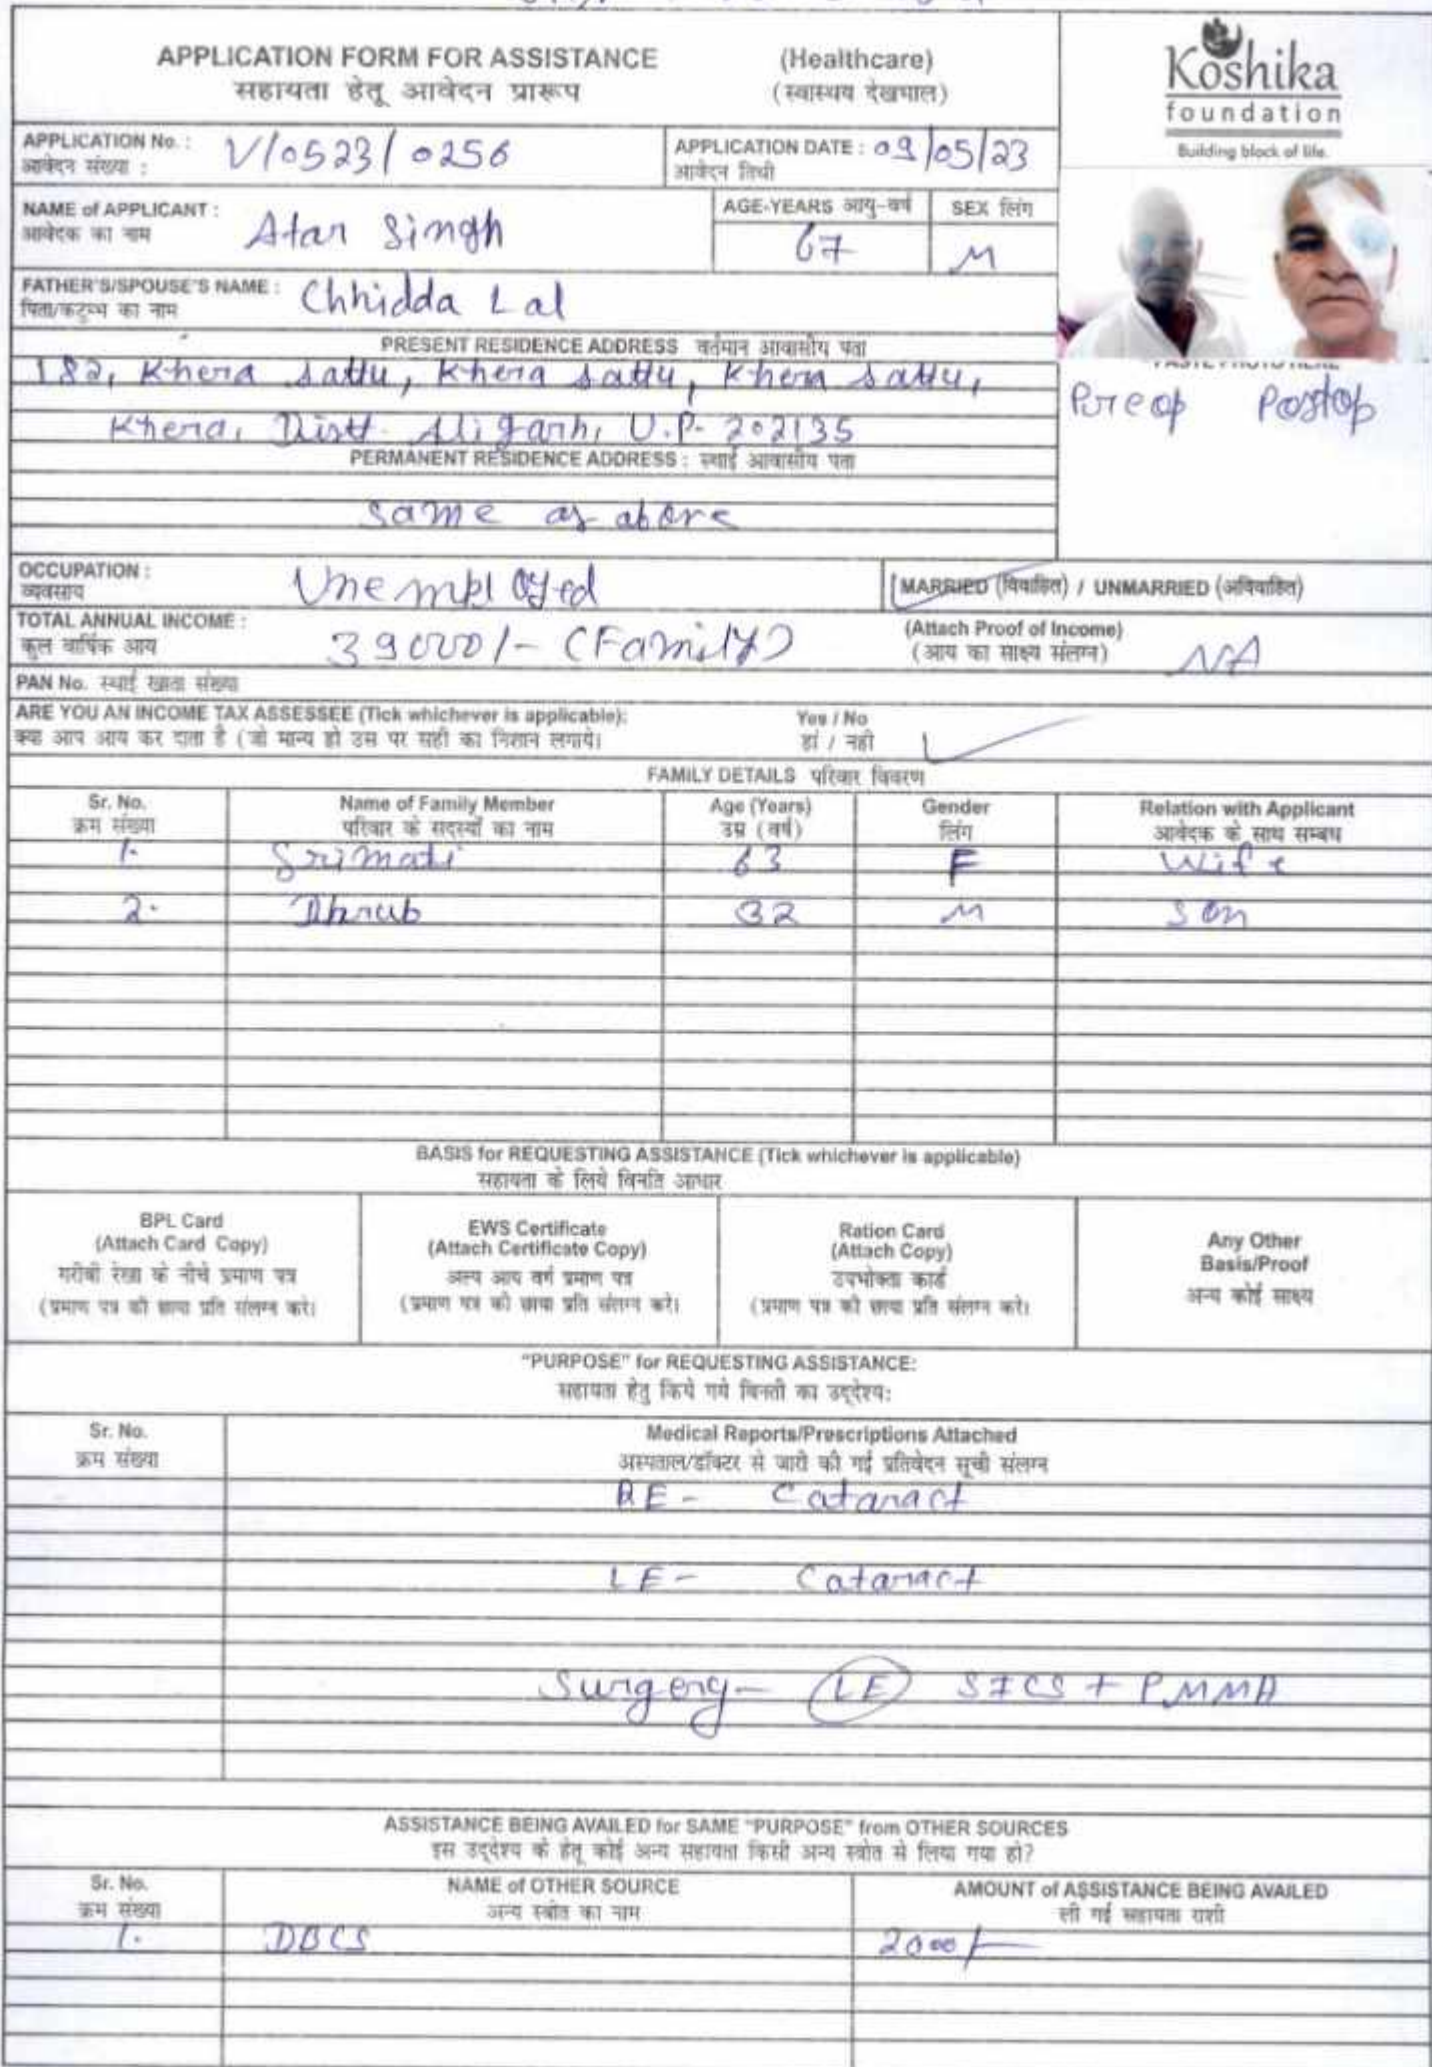 APPLICATION FORM FOR ASSISTANCE (Healthcare)
सहायता हेतू आवेदन प्रारूप (स्वास्थय देखभाल)
Koshika
foundation
Building block of life.
APPLICATION No. : V/0523/0256
आवेदन संख्या :
APPLICATION DATE : 09/05/23
आवेदन तिथी
NAME of APPLICANT : Atar Singh
आवेदक का नाम
AGE-YEARS आयु-वर्ष 67
SEX लिंग M
FATHER'S/SPOUSE'S NAME : Chhidda Lal
पिता/कटुम्भ का नाम
PRESENT RESIDENCE ADDRESS वर्तमान आवासीय पता
182, Khera Sattu, Khera Sattu, Khera Sattu,
Khera, Distt. Aligarh, U.P- 202135
Preop Postop
PERMANENT RESIDENCE ADDRESS : स्थाई आवासीय पता
Same as above
OCCUPATION : Unemployed
व्यवसाय
MARRIED (विवाहित) / UNMARRIED (अविवाहित)
TOTAL ANNUAL INCOME : 39000/- (Family)
कुल वार्षिक आय
(Attach Proof of Income) NA
(आय का साक्ष्य संलग्न)
PAN No. स्थाई खाता संख्या
ARE YOU AN INCOME TAX ASSESSEE (Tick whichever is applicable): Yes / No
क्या आप आय कर दाता है (जो मान्य हो उस पर सही का निशान लगाये। हां / नही
FAMILY DETAILS परिवार विवरण
Sr. No. Name of Family Member Age (Years) Gender Relation with Applicant
क्रम संख्या परिवार के सदस्यों का नाम उम्र (वर्ष) लिंग आवेदक के साथ सम्बध
1. Srimati 63 F Wife
2. Dhrub 32 M Son
BASIS for REQUESTING ASSISTANCE (Tick whichever is applicable)
सहायता के लिये विनति आधार
BPL Card
(Attach Card Copy)
गरीबी रेखा के नीचे प्रमाण पत्र
(प्रमाण पत्र की छाया प्रति संलग्न करे।
EWS Certificate
(Attach Certificate Copy)
अल्प आय वर्ग प्रमाण पत्र
(प्रमाण पत्र की छाया प्रति संलग्न करे।
Ration Card
(Attach Copy)
उपभोक्ता कार्ड
(प्रमाण पत्र की छाया प्रति संलग्न करे।
Any Other
Basis/Proof
अन्य कोई साक्ष्य
"PURPOSE" for REQUESTING ASSISTANCE:
सहायता हेतु किये गये विनती का उद्देश्य:
Sr. No. Medical Reports/Prescriptions Attached
क्रम संख्या अस्पताल/डॉक्टर से जारी की गई प्रतिवेदन सूची संलग्न
RE - Cataract
LE - Cataract
Surgery - LE SICS + PMMA
ASSISTANCE BEING AVAILED for SAME "PURPOSE" from OTHER SOURCES
इस उद्देश्य के हेतू कोई अन्य सहायता किसी अन्य स्त्रोत से लिया गया हो?
Sr. No. NAME of OTHER SOURCE AMOUNT of ASSISTANCE BEING AVAILED
क्रम संख्या अन्य स्त्रोत का नाम ली गई सहायता राशी
1. DBCS 2000/-